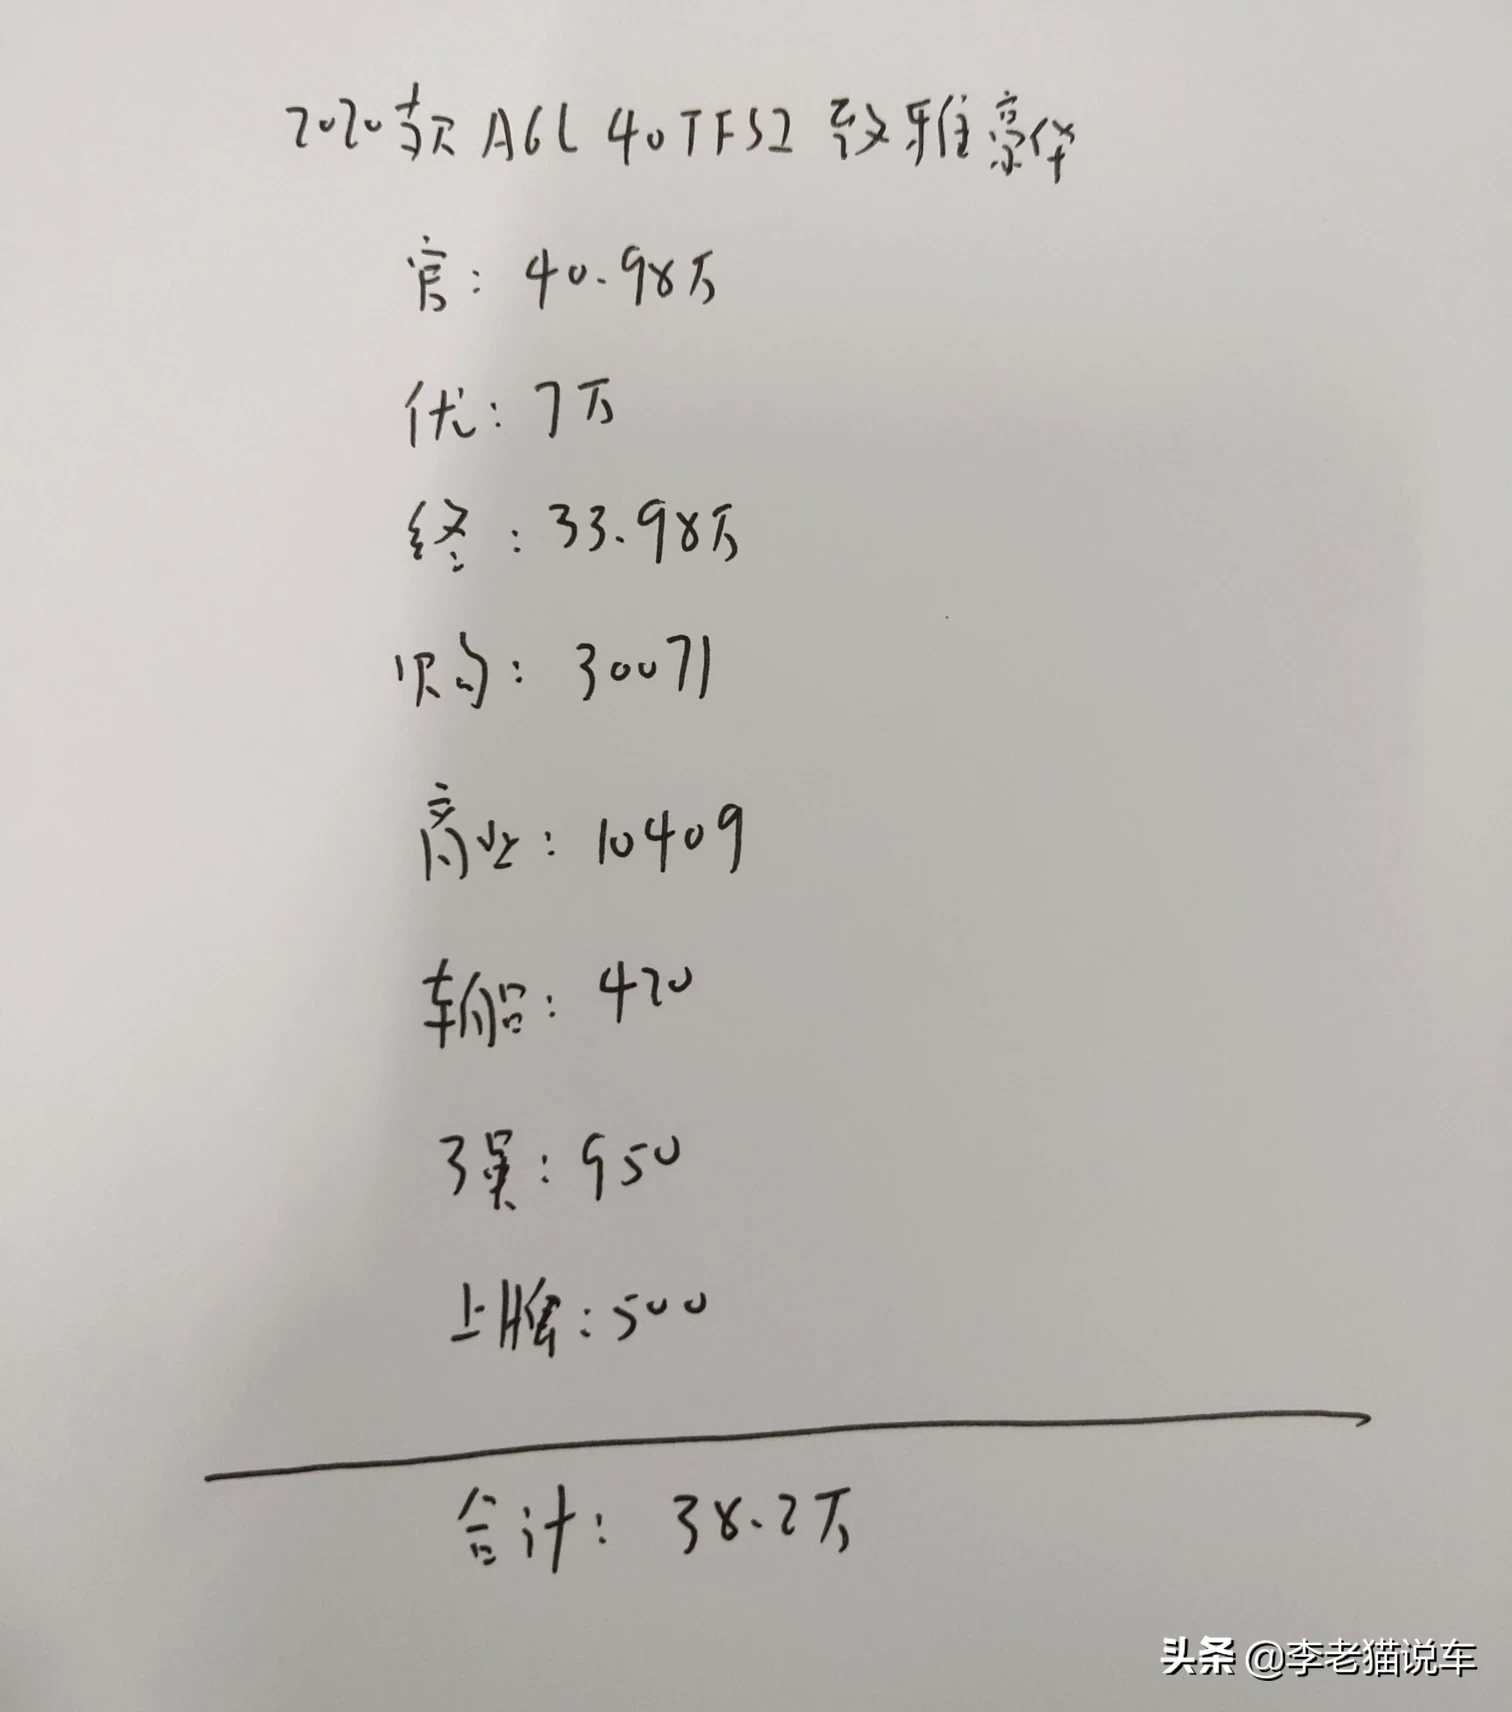 2020款A6L 40TFSI 致雅豪华
官: 40.98万
优: 7万
终: 33.98万
购: 30071
商业: 10409
车船: 420
强: 950
上牌: 500
合计: 38.2万
头条 @李老猫说车